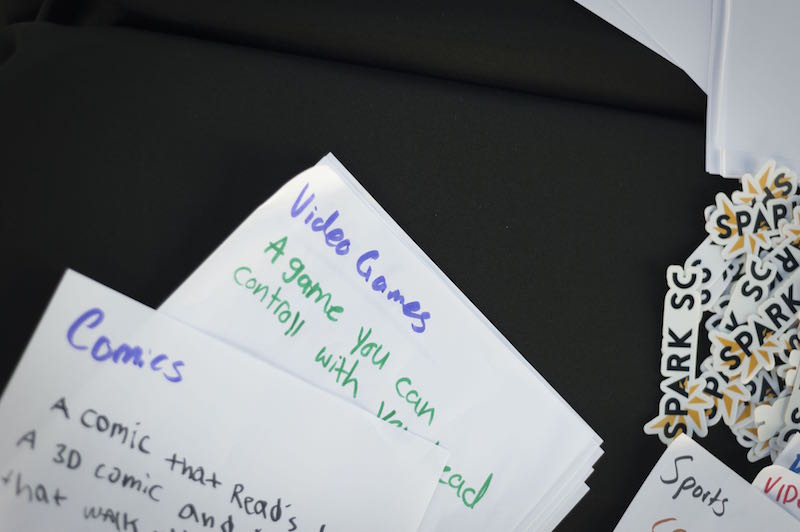 Video Games
A game you can
controll with
Comics
A comic that Read's
A 3D comic and
that walk
Sports
SPARK SC
SPARK
SPARK
SPARK
SPARK